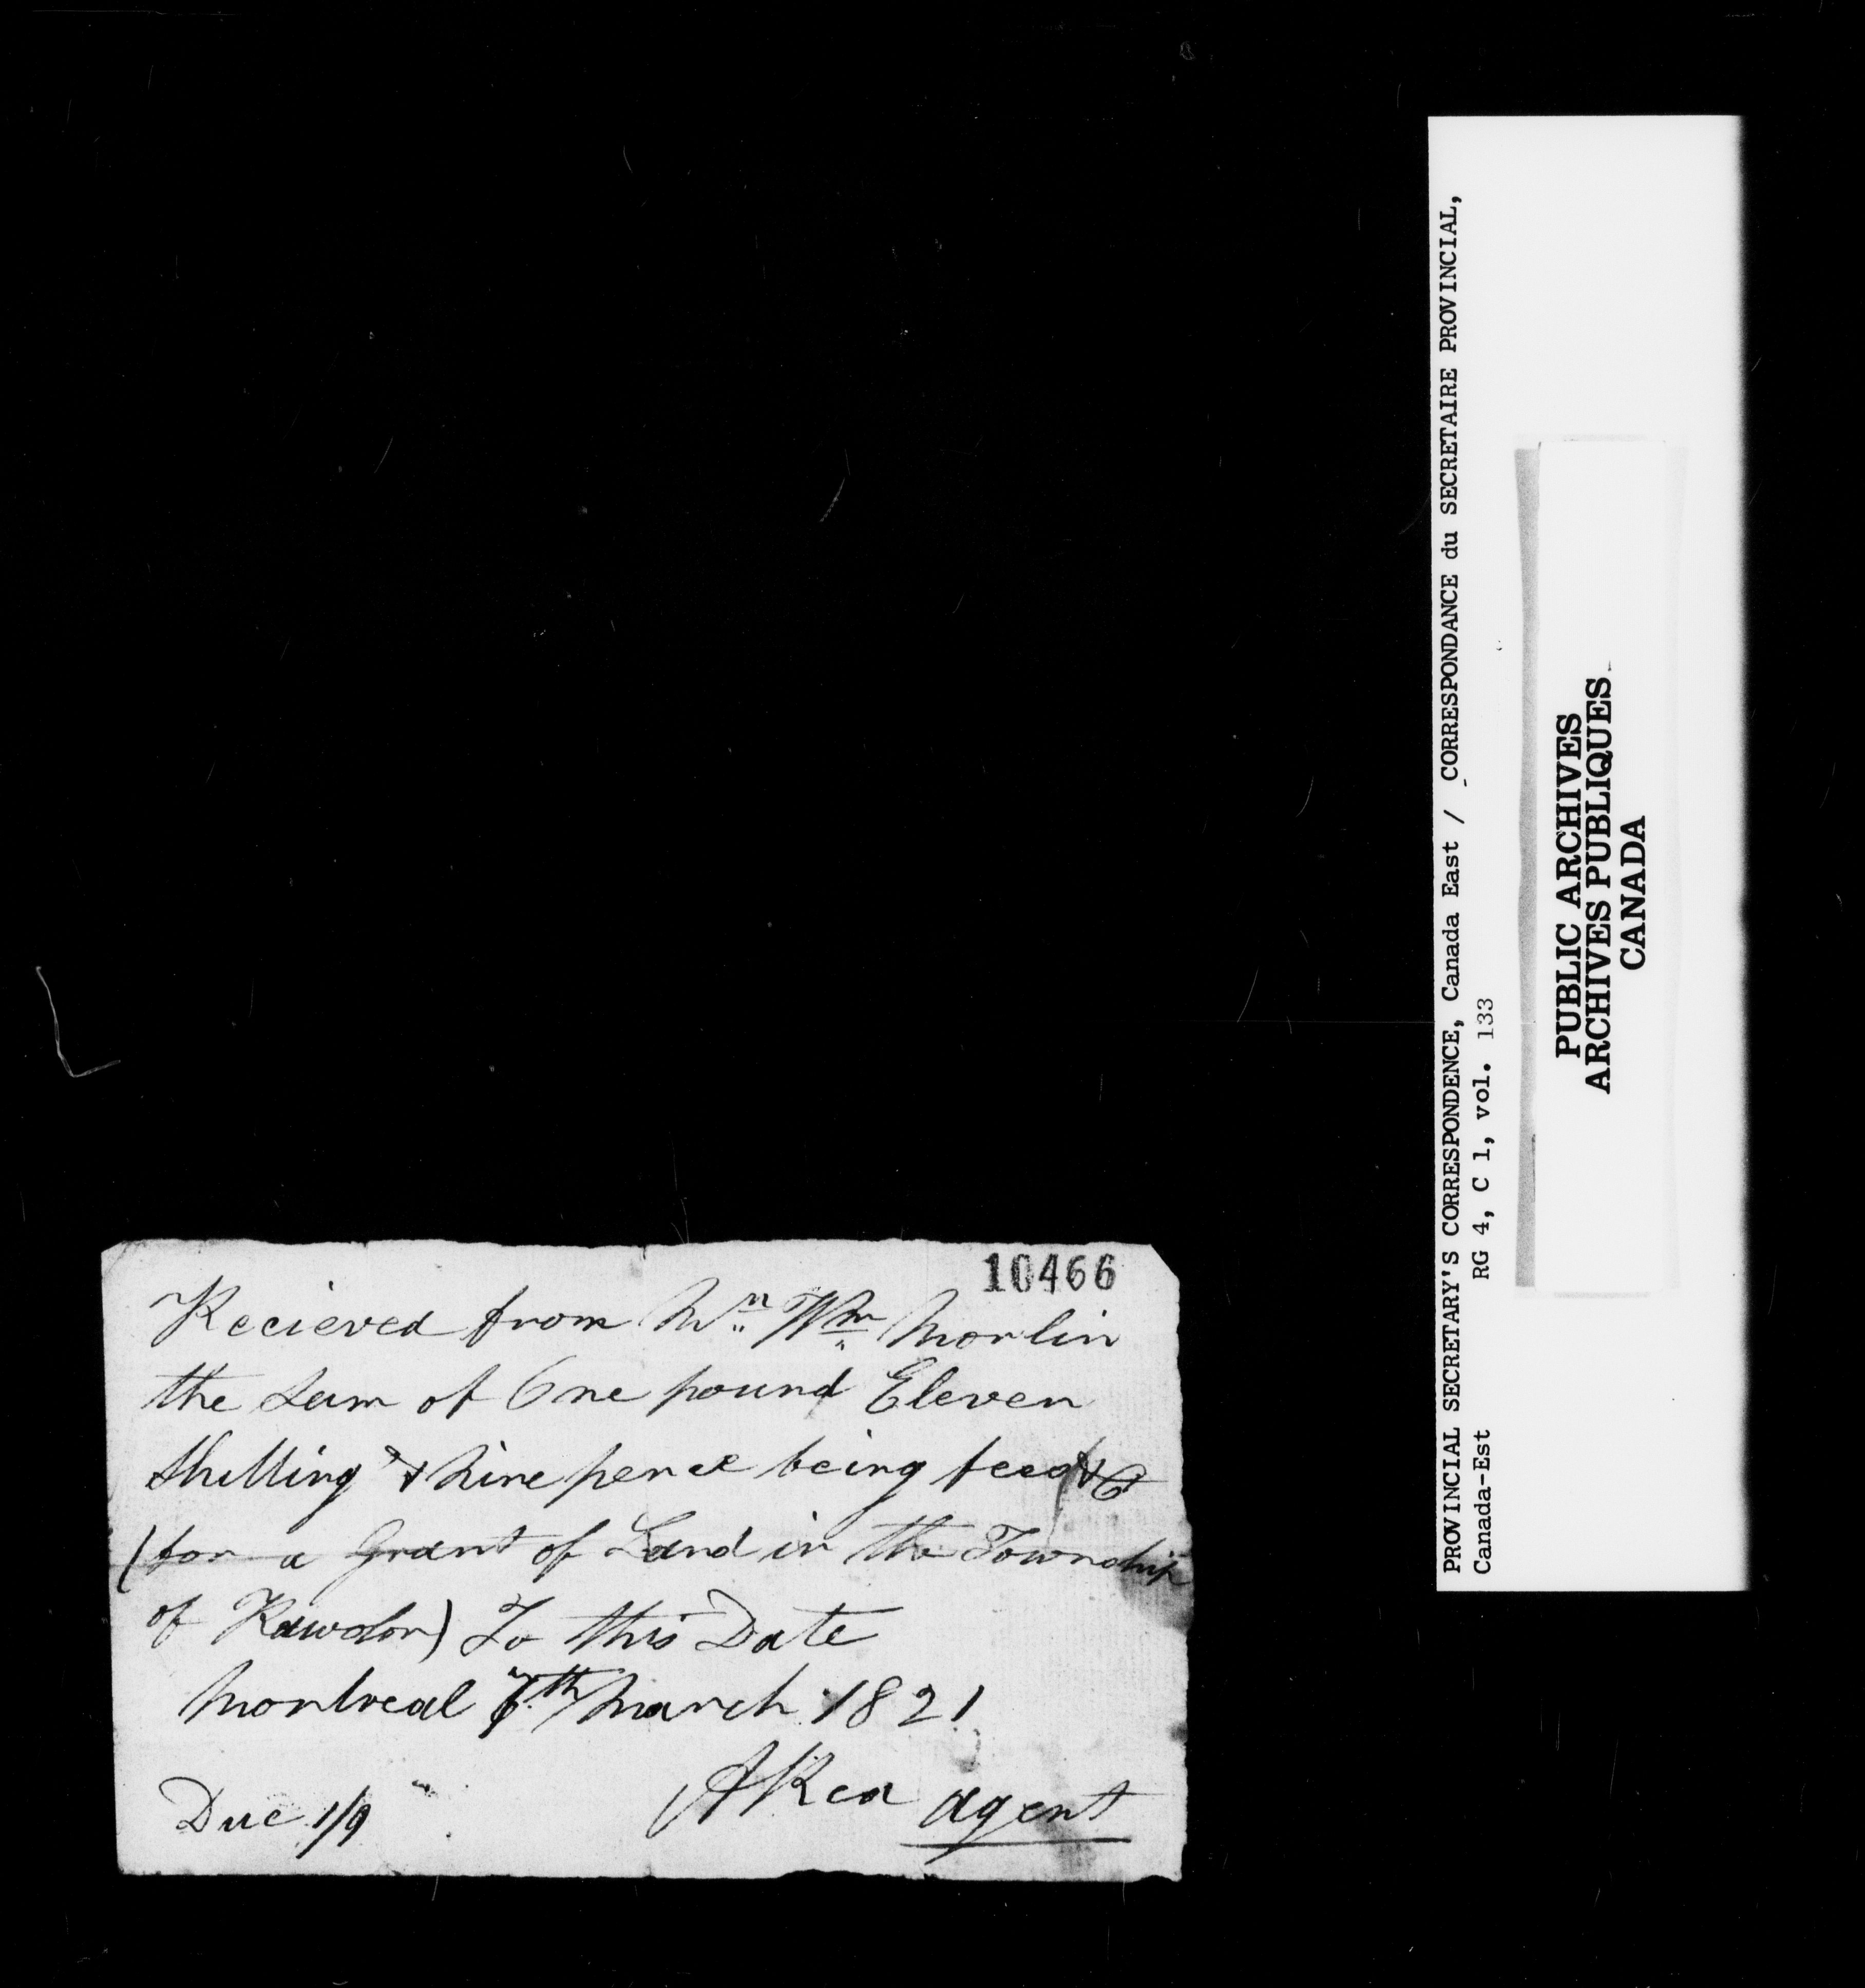 10466
Recieved from Mr. Wm. Morlin
the Sum of One pound Eleven
Shilling & Nine pence being fees &c
(for a Grant of Land in the Township
of Rawdon) To this Date
Montreal 7th March 1821
Due 1/9 ARea agent
PROVINCIAL SECRETARY'S CORRESPONDENCE, Canada East / CORRESPONDANCE du SECRETAIRE PROVINCIAL,
Canada-Est RG 4, C 1, vol. 133
PUBLIC ARCHIVES
ARCHIVES PUBLIQUES
CANADA